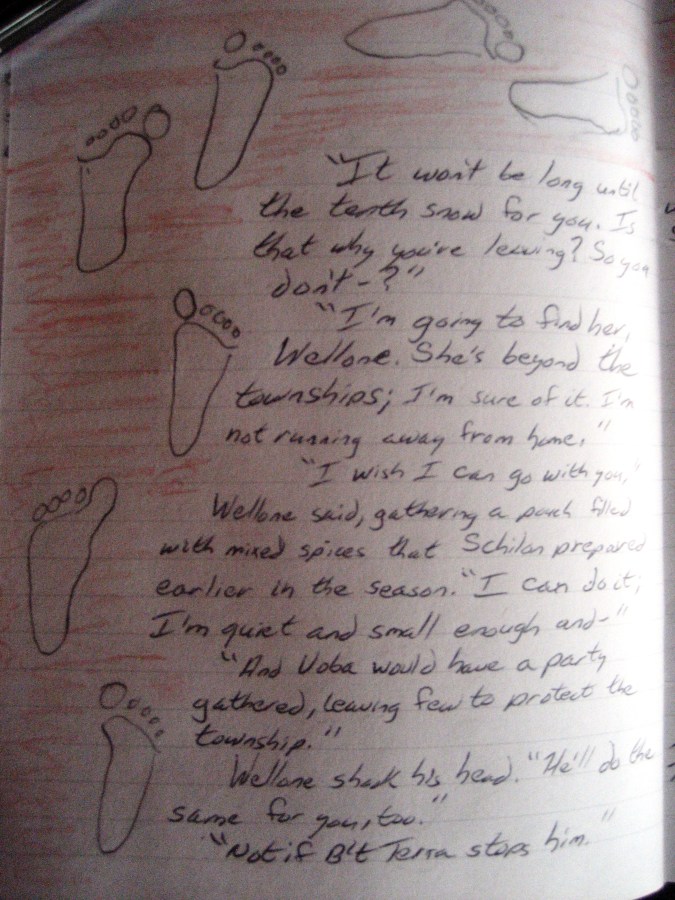 "It won't be long until
the tenth snow for you. Is
that why you're leaving? So you
don't-?"
"I'm going to find her,
Wellone. She's beyond the
townships; I'm sure of it. I'm
not running away from home."
"I wish I can go with you,"
Wellone said, gathering a pouch filled
with mixed spices that Schilan prepared
earlier in the season. "I can do it;
I'm quiet and small enough and-"
"And Uoba would have a party
gathered, leaving few to protect the
township."
Wellone shook his head. "He'll do the
same for you, too."
"Not if B't Terra stops him."